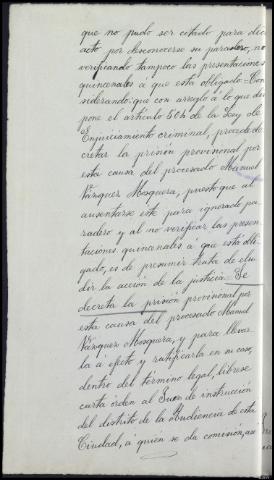 que no pudo ser citado para dicho
acto por desconocerse su paradero, no
verificando tampoco las presentaciones
quincenales á que esta obligado- Con
siderando: que con arreglo á lo que dis
pone el artículo 504 de la Ley de
Enjuiciamiento criminal, procede de
cretar la prisión provisional por
esta causa del procesado Manuel
Vázquez Mosquera, puesto que al
ausentarse éste para ignorado pa
radero y al no verificar las presen
taciones quincenales á que está obli
gado, es de presumir trata de elu
dir la acción de la justicia. Se
decreta la prisión provisional por
esta causa del procesado Manuel
Vázquez Mosquera, y para llevar
la á efecto y ratificarla en su caso,
dentro del término legal, líbrese
carta órden al Juez de instrucción
del distrito de la Audiencia de esta
Ciudad, á quién se da comisión, así